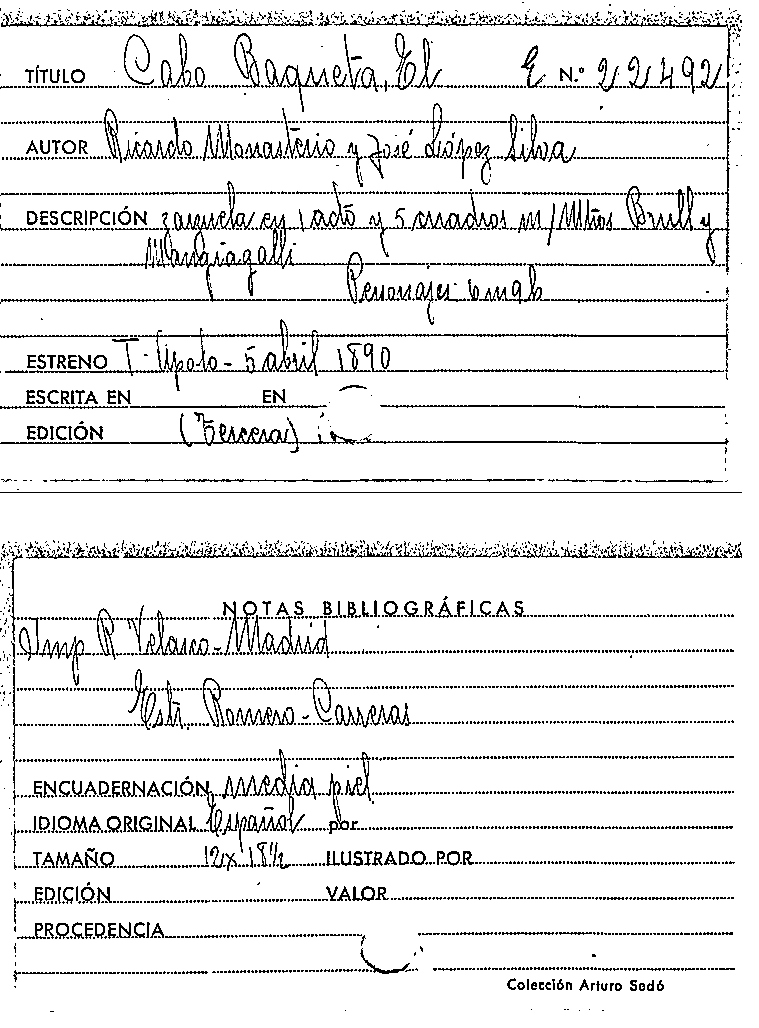 TÍTULO Cabo Baqueta, El E N.º 22492
AUTOR Ricardo Monasterio y José López Silva
DESCRIPCIÓN zarzuela en 1 acto y 5 cuadros m/ Mtros Brull y
Mangiagalli
Personajes 6m 9h
ESTRENO T. Apolo - 5 abril 1890
ESCRITA EN EN
EDICIÓN (Tercera)
NOTAS BIBLIOGRÁFICAS
Imp R Velasco - Madrid
Estr. Romero - Carreras
ENCUADERNACIÓN media piel
IDIOMA ORIGINAL Español por
TAMAÑO 12x18½ ILUSTRADO POR
EDICIÓN VALOR
PROCEDENCIA
Colección Arturo Sedó